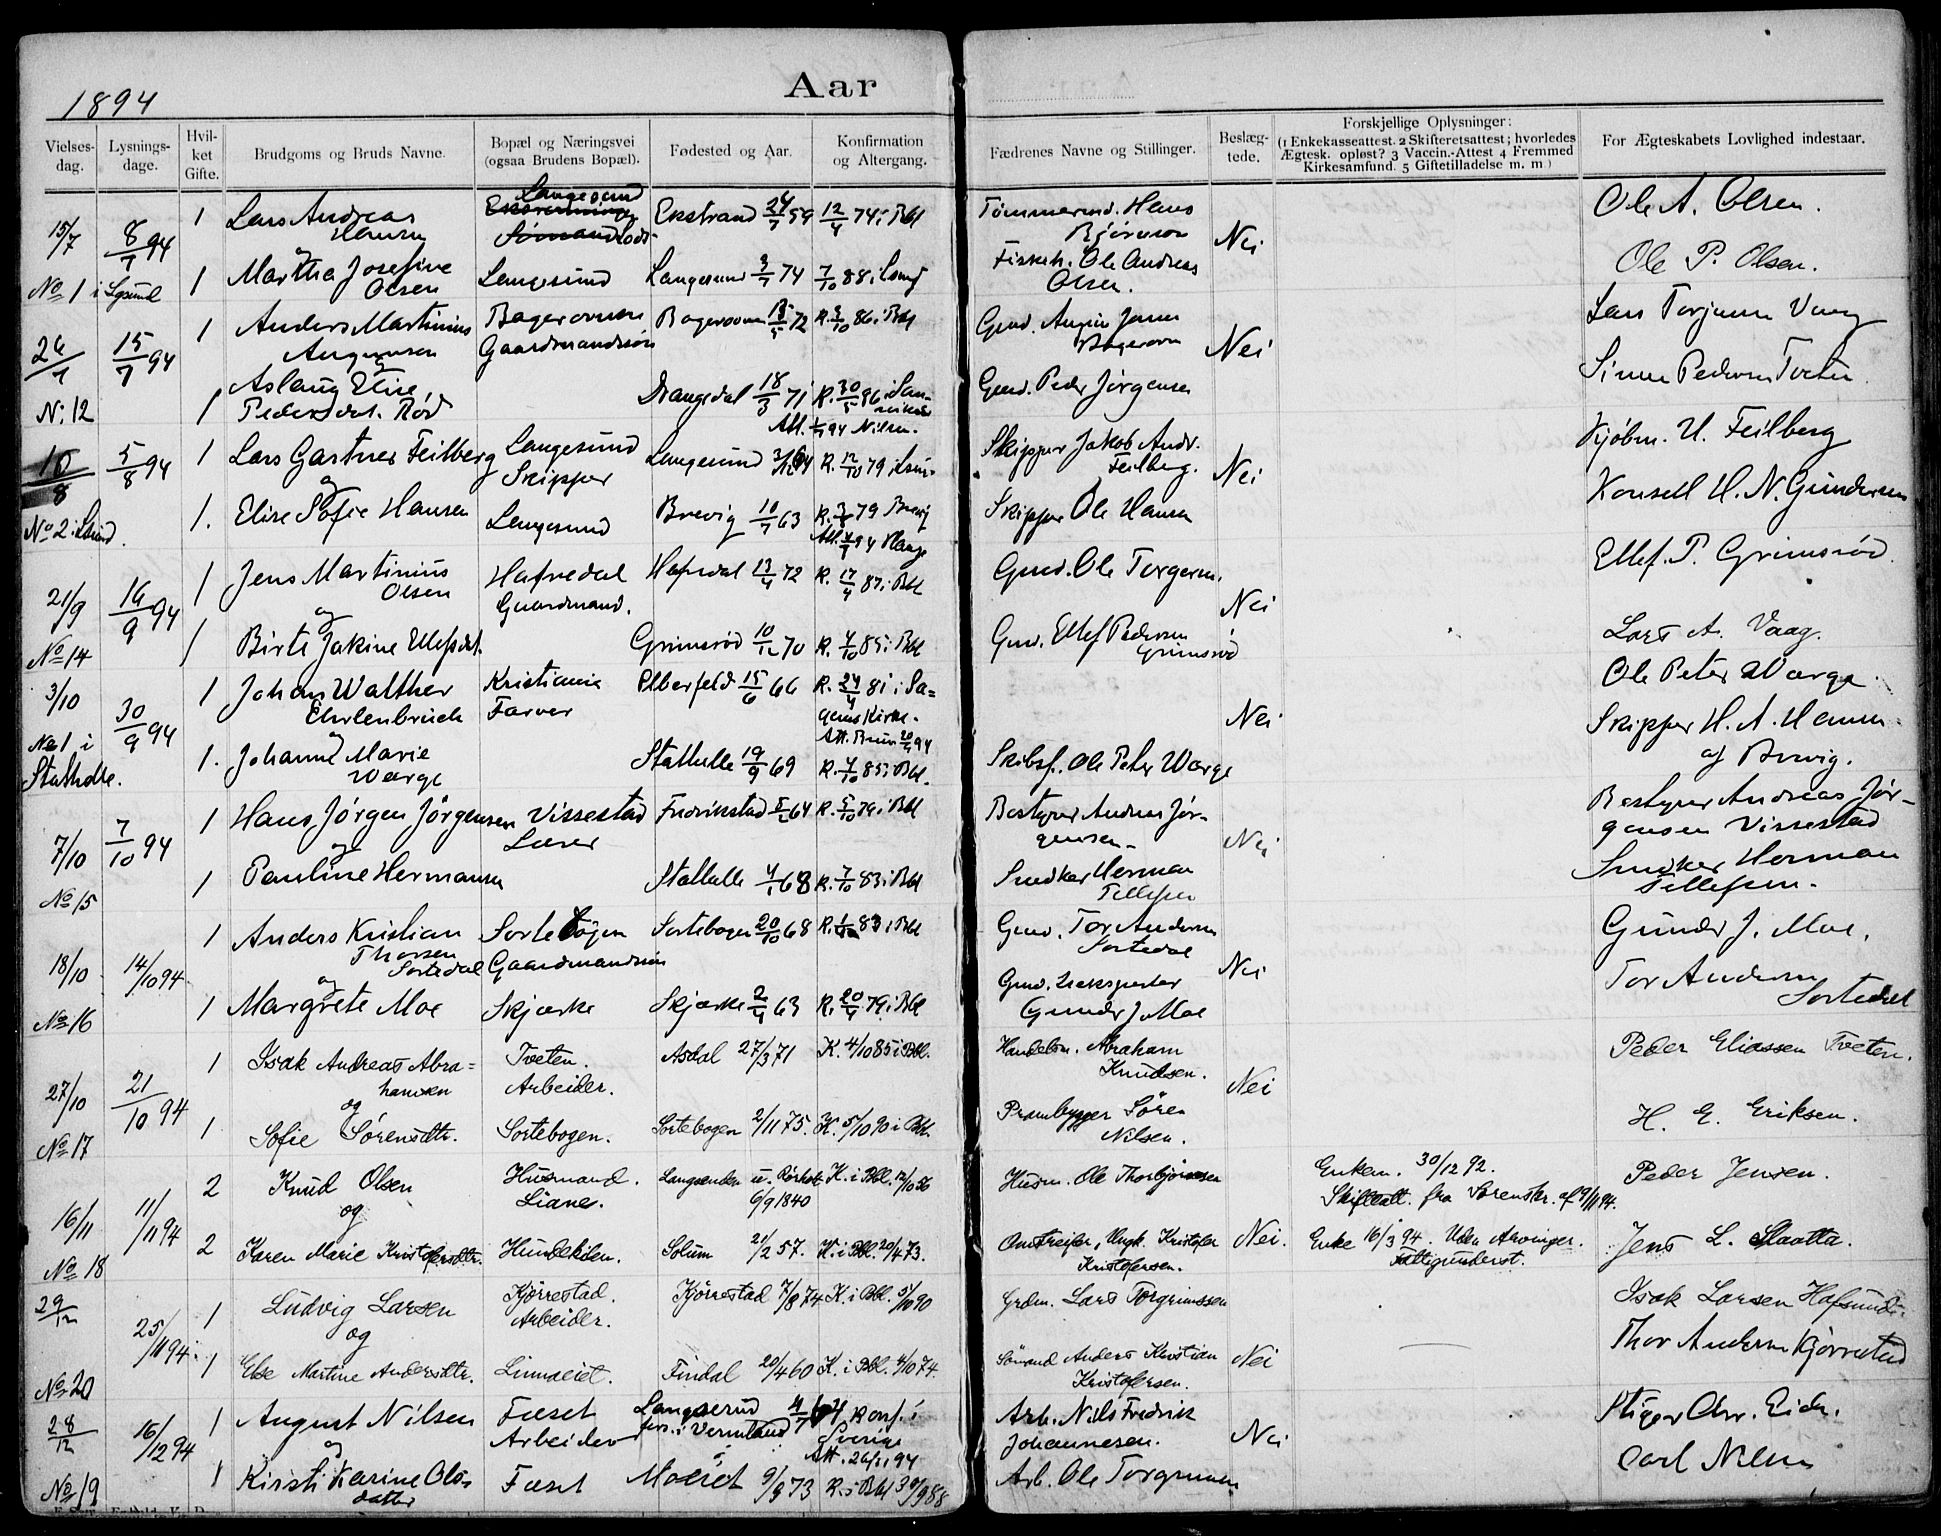 1894
Aar
Vielses-dag.
Lysnings-dage.
Hvil-ket Gifte.
Brudgoms og Bruds Navne.
Bopæl og Næringsvei (ogsaa Brudens Bopæl).
Fødested og Aar.
Konfirmation og Altergang.
Fædrenes Navne og Stillinger.
Beslæg-tede.
Forskjellige Oplysninger:
(1 Enkekasseattest. 2 Skifteretsattest; hvorledes
Ægtesk. opløst? 3 Vaccin.-Attest 4 Fremmed
Kirkesamfund. 5 Giftetilladelse m. m.)
For Ægteskabets Lovlighed indestaar.
15/7 8/7 94 1 Lars Andreas Hansen Langesund Eksstrand 24/7 59 12/4 74 i Bbl Tømmermd. Hans Bjørnson Nei Ole A. Olsen.
og
No 1 i Lgsund 1 Martha Josefine Olsen Langesund Langesund 3/7 74 7/10 88 i Lsund Fiskeh. Ole Andreas Olsen. Ole P. Olsen.
26/7 15/7 94 1 Anders Martinius Bagerovnen Gaardmandssøn Bagerovnen 72 K. 3/10 86 i Bbl Gmd. Bagerovn Nei Lars Torjussen Vaag
og
N: 12 1 Aslaug Elise Pedersdat. Rød Drangedal 18/3 71 K. 30/5 86 i Att. 94 Nilsen. Gmd. Peder Jørgensen Simen Pedersen Tveten
10/8 5/8 94 1 Lars Gartner Feilberg Langesund Skipper Langesund K. 12/10 79 i Lsun. Skipper Jakob Andr. Feilberg. Nei Kjøbm. U. Feilberg
og
No 2 i Lsund. 1. Elise Sofie Hansen Langesund Brevig 10/7 63 K. 79 Brevig Att. 94 Hauge Skipper Ole Hansen Konsell H. N. Gundersen
21/9 16/9 94 1 Jens Martinius Olsen Hafredal Gaardmand. Hafredal 13/4 72 K. 17/4 87 i Bbl Gmd. Ole Torgersen. Nei Ellef. P. Grimsrød
og
No 14 1 Birte Jakine Ellefsdat. Grimsrød 10/12 70 K. 4/10 85 i Bbl Gmd. Ellef Pedersen Grimsrød Lars A. Vaag.
3/10 30/9 94 1 Johan Walther Ehrlenbruch Kristiania Farver Elberfeld 15/6 66 K. 24/4 81 i Sa=gens Kirke. Att. Bruun 20/9 94 Nei Ole Peter Warge
og
No 1 i Stathelle. 1. Johanne Marie Warge Stathelle 19/9 69 K. 4/10 85 i Bbl. Skibsf. Ole Peter Warge Skipper H. A. Hansen af Brevig.
7/10 7/10 94 1 Hans Jørgen Jørgensen Vissestad Lærer Fredrikstad 64 K. 5/10 79 i Bbl Bestyrer Andreas Jør-gensen Nei Bestyrer Andreas Jør-gensen Vissestad
og
No 15 1 Pauline Hermansen Stathelle 4/1 68 K. 7/10 83 i Bbl Snedker Herman Tellefsen Snedker Herman Tellefsen.
18/10 14/10 94 1 Anders Kristian Thorsen Sortedal Sortebogen Gaardmandssøn Sortebogen 20/10 68 K. 83 i Bbl Gmd. Tor Andersen Sortedal Nei Gunder J. Moe.
og
No 16 1 Margrete Moe Skjærke Skjærke 2/4 63 K. 20/4 79 i Bbl Gmd. Gunder J. Moe Tor Andersen Sortedal
27/10 21/10 94 1 Isak Andreas Abra=hamsen Tveten. Arbeider. Asdal 27/3 71 K. 4/10 85 i Bbl. Handelsm. Abraham Knudsen. Nei Peder Eliassen Tveten.
og
No 17 1 Sofie Sørensdtr. Sortebogen. Sortebogen 2/11 75. K. 5/10 90 i Bbl. Prambygger Søren Nilsen. H. E. Eriksen.
16/11 11/11 94 2 Knud Olsen Husmand. Lianes. Langsanden u. Rørholt 6/9 1840 K. i Bbl. 12/10 56 Husm. Ole Thorbjørnsen Enkem. 30/12 92. Skifteatt. fra Sorenskr. af 9/11 94. Peder Jensen.
og
No 18 2 Karen Marie Kristofersdtr. Hundekilen. Solum 21/2 57. K. i Bbl. 20/4 73. Omstreifer, Ungk. Kristofer Kristofersen. Nei. Enke 16/3 94. Uden Arvinger. Fattigunderst. Jens L. Slaatta.
29/12 25/11 94. 1 Ludvig Larsen Kjørrestad. Arbeider. Kjørrestad 7/8 74 K. i Bbl. 5/10 90 Grdm. Lars Torgrimssen Isak Larsen Hafsund.
og
No 20 1 Else Martine Andersdtr. Linnaeiet. Findal 20/4 60 K. i Bbl. 4/10 74. Sømand Anders Kristian Kristofersen. Nei Thor Andersen Kjørrestad
28/12 16/12 94 1 August Nilsen Fæset Arbeider Langserud i Vermland Konf. i Sverige Att. 26/11 94 Arb. Nils Fredrik Johannesen. Nei Stiger Chr. Eidn.
og
No 19 1 Kirsti Karine Ols-datter Fæset Moeiet 9/9 73 K. i Bbl 30/9 88 Arb. Ole Torgrimsen Carl Nilsen